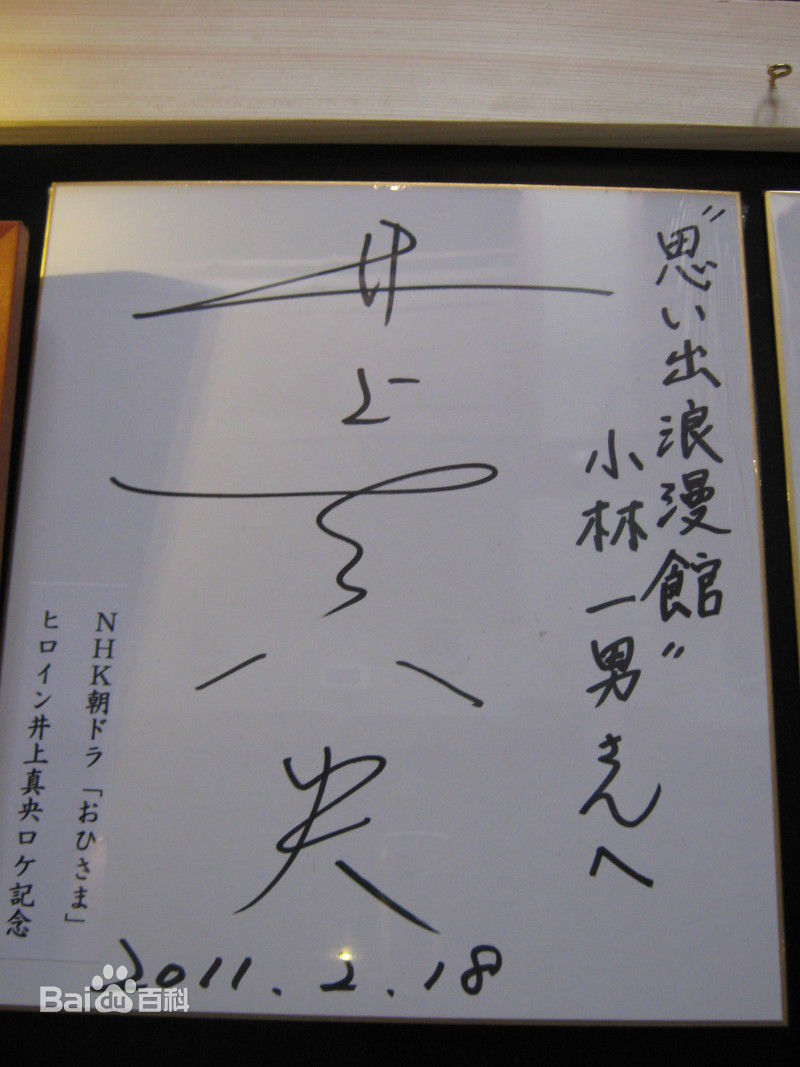 "思い出浪漫館"
小林一男さんへ
井上真央
2011.2.18
NHK朝ドラ「おひさま」
ヒロイン井上真央ロケ記念
Baidu百科